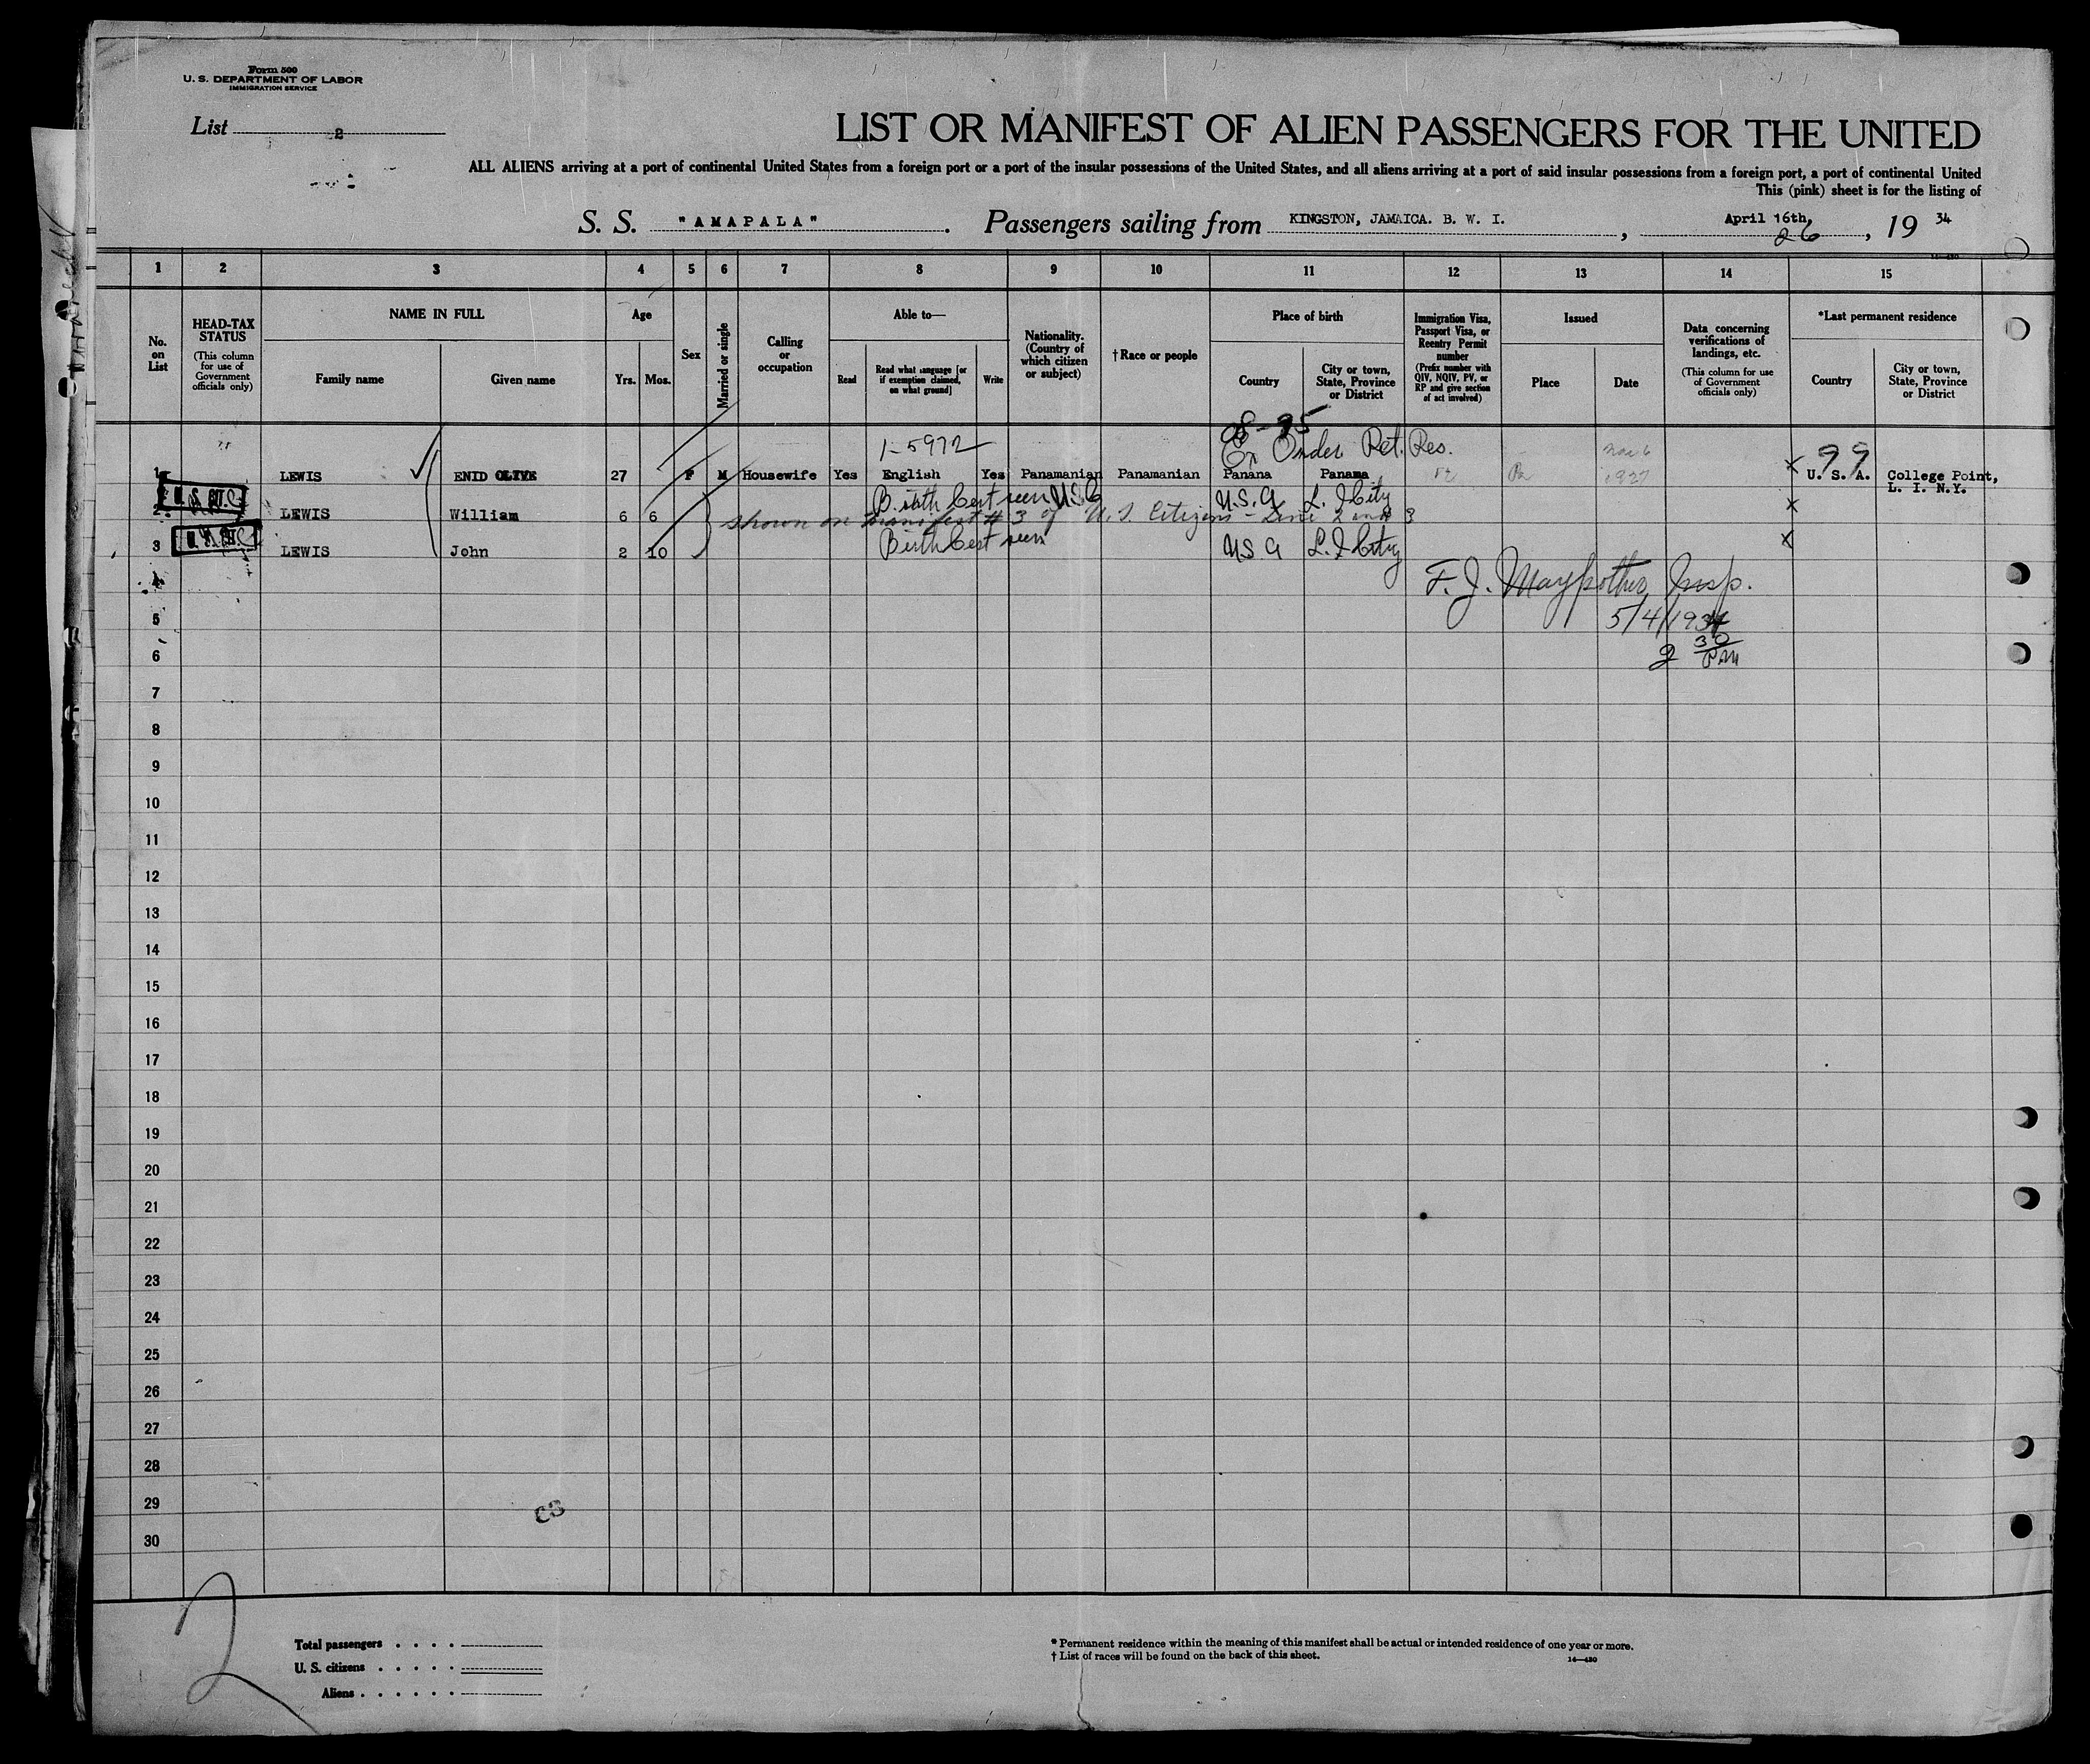 Form 500
U. S. DEPARTMENT OF LABOR
IMMIGRATION SERVICE
List 2
LIST OR MANIFEST OF ALIEN PASSENGERS FOR THE UNITED
ALL ALIENS arriving at a port of continental United States from a foreign port or a port of the insular possessions of the United States, and all aliens arriving at a port of said insular possessions from a foreign port, a port of continental United
This (pink) sheet is for the listing of
S. S. "AMAPALA". Passengers sailing from KINGSTON, JAMAICA. B. W. I., April 16th, 1934
26
1 2 3 4 5 6 7 8 9 10 11 12 13 14 15
No. on List
HEAD-TAX STATUS
(This column for use of Government officials only)
NAME IN FULL
Family name
Given name
Age
Yrs.
Mos.
Sex
Married or single
Calling or occupation
Able to—
Read
Read what language [or if exemption claimed, on what ground]
Write
Nationality. (Country of which citizen or subject)
†Race or people
Place of birth
Country
City or town, State, Province or District
Immigration Visa, Passport Visa, or Reentry Permit number
(Prefix number with QIV, NQIV, PV, or RP and give section of act involved)
Issued
Place
Date
Data concerning verifications of landings, etc.
(This column for use of Government officials only)
*Last permanent residence
Country
City or town, State, Province or District
1-5972
Under Ret. Res.
99
1 LEWIS ENID OLIVE 27 F M Housewife Yes English Yes Panamanian Panamanian Panana Panama 1927 x U. S. A. College Point,
L. I. N.Y.
Birth Cert seen U.S.C U.S.A L. I City
2 LEWIS William 6 6 x
shown on manifest # 3 of U.S. Citizens - Line 2 and 3
3 LEWIS John 2 10 Birth Cert seen U.S.A L. I City x
4
F. J. Maypother Insp.
5
5/4/1934
6
2 30 PM
7
8
9
10
11
12
13
14
15
16
17
18
19
20
21
22
23
24
25
26
27
28
29
C3
30
2
Total passengers . . . .
U. S. citizens . . . . .
Aliens . . . . . .
* Permanent residence within the meaning of this manifest shall be actual or intended residence of one year or more.
† List of races will be found on the back of this sheet.
14—430